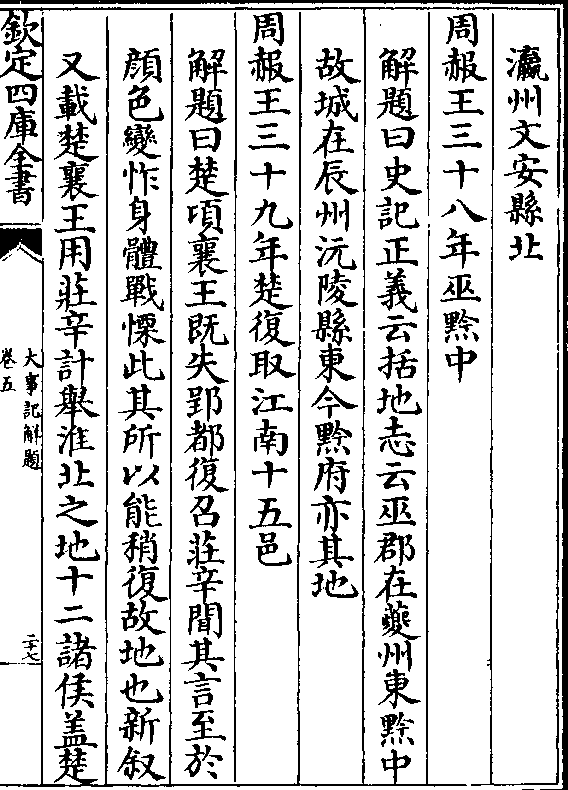 瀛州文安縣北
周赧王三十八年巫黔中
解題曰史記正義云括地志云巫郡在夔州東黔中
故城在辰州沅陵縣東今黔府亦其地
周赧王三十九年楚復取江南十五邑
解題曰楚頃襄王既失郢都復召莊辛聞其言至於
顔色變怍身體戰慄此其所以能稍復故地也新叙
又載楚襄王用莊辛計舉淮北之地十二諸侯盖楚
欽定四庫全書
大事記解題
卷五
二十七